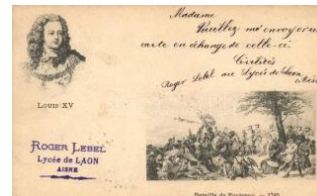 Madame
Veuillez m'envoyer un
carte en échange de celle-ci
Civilités
Roger Lebel au Lycée de Laon
Aisne
LOUIS XV
ROGER LEBEL
Lycée de LAON
AISNE
Bataille de Fontenoy. — 1745